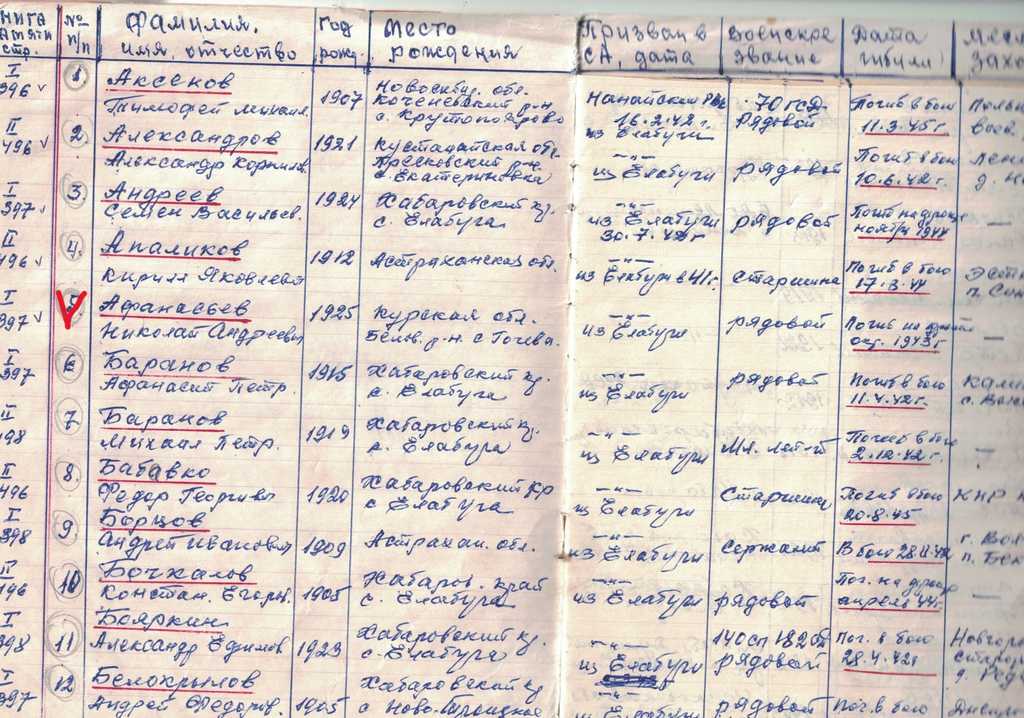 КНИГА ПАМЯТИ стр. | № п/п | Фамилия, имя, отчество | Год рожд. | Место рождения | Призван в СА, дата | Воинское звание | Дата гибели | Место
I 396 | 1 | Аксенов Тимофей Михаил. | 1907 | Новосибир. обл. Коченевский р-н с. Крутоярово | Нанайским РВК 16.2.42 г. | 70 ГСД рядовой | Погиб в бою 11.3.45 г
II 496 | 2. | Александров Александр Корнил. | 1921 | Кустанайская обл. Пресковский р-н с. Екатериновка | из Елабуги | рядовой | Погиб в бою 10.6.42 г.
I 397 | 3 | Андреев Семен Васильев. | 1924 | Хабаровский кр. с. Елабуга | —"— из Елабуги 30.7.42 г | рядовой | Погиб на фронте ноябрь 1944 | —
II 496 | 4. | Апаликов Кирилл Яковлевич | 1912 | Астраханская обл. | —"— из Елабуги в 41 г. | Старшина | Погиб в бою 17.3.44
I 397 | 5 | Афанасьев Николай Андреевич | 1925 | Курская обл. Белов. р-н с Гочева | —"— из Елабуги | рядовой | Погиб на фронте окт. 1943 г | —
I 397 | 6 | Баранов Афанасий Петр. | 1915 | Хабаровский кр. с. Елабуга | —"— из Елабуги | рядовой | Погиб в бою 11.4.42 г.
II 498 | 7 | Баранов Михаил Петр. | 1919 | Хабаровский кр. с. Елабуга | —"— из Елабуги | Мл. лет-т | Погиб в бою 2.12.42 г. | —
II 496 | 8. | Бабавко Федор Георгиев | 1920 | Хабаровский кр с Елабуга | —"— из Елабуги | Старшина | Погиб в бою 20.8.45 | КНР
I 398 | 9 | Борцов Андрей Иванович | 1909 | Астрахан. обл. | —"— из Елабуги | Сержант | В бою 28.11.42
II 496 | 10 | Бочкалов Констан. Егорн. | 1905 | Хабаров. край с. Елабуга | —"— из Елабуги | рядовой | Пог. на фронте апрель 44 г. | —
I 398 | 11 | Бояркин Александр Ефимов | 1923 | Хабаровский кр. с. Елабуга | —"— из Елабуги | 140 сп 182 сд рядовой | Пог. в бою 28.4.42 г
I 397 | 12 | Белокрылов Андрей Федоров. | 1905 | Хабаровский кр с Ново-Троицкое | —"— из Елабуги | рядовой | Пог. в бою